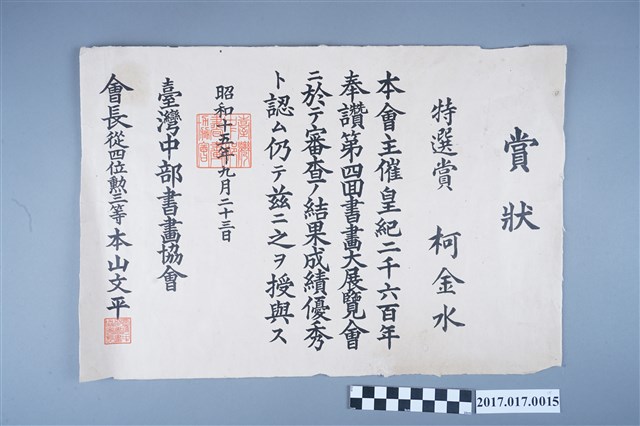 賞狀
特選賞 柯金水
本會主催皇紀二千六百年
奉讚第四回書畫大展覽會
ニ於テ審查ノ結果成績優秀
ト認ム仍テ茲ニ之ヲ授與ス
昭和十五年九月二十三日
臺灣中部書畫協會
會長從四位勲三等本山文平
2017.017.0015